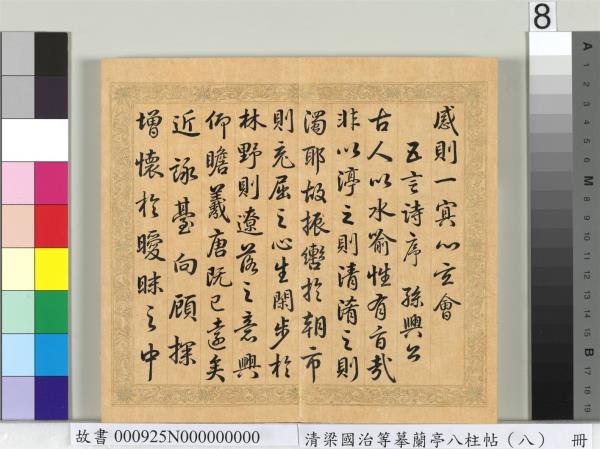 感則一冥心玄會
五言詩序 孫興公
古人以水喻性有旨哉
非以渟之則清淆之則
濁耶故振轡於朝市
則充屈之心生閑步於
林野則遼落之意興
仰瞻羲唐既已遠矣
近詠臺向顧探
增懷於曖昧之中
8
A 1 2 3 4 5 6 M 8 9 10 11 12 13 14 15 B 17 18 19
故書 000925N000000000 清梁國治等摹蘭亭八柱帖（八） 冊